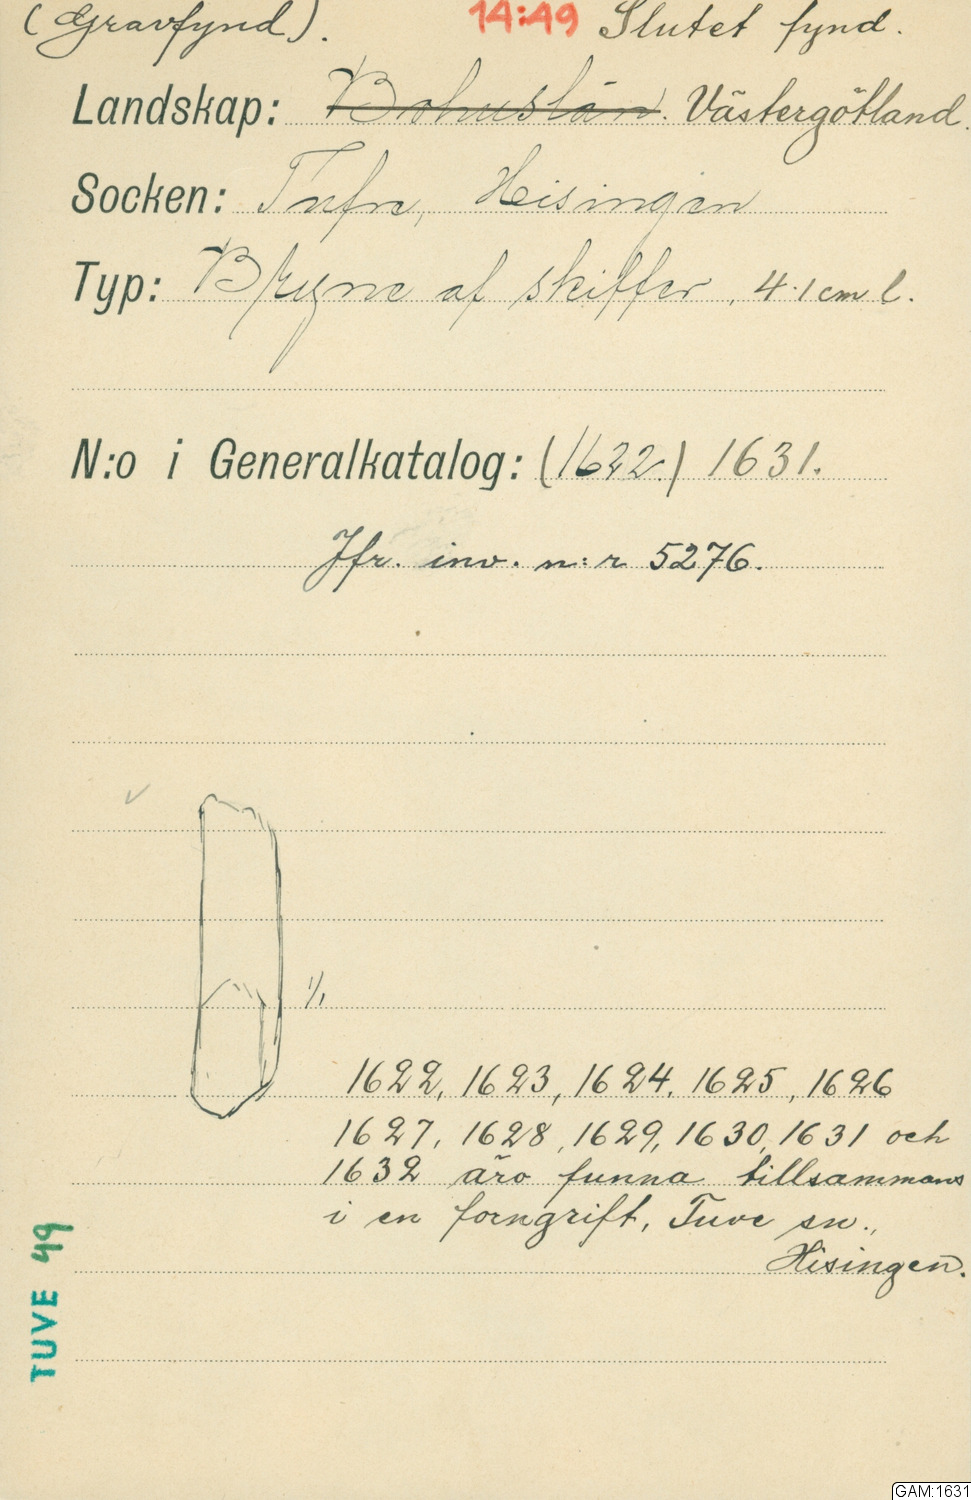 (Gravfynd). 14:49 Slutet fynd.
Landskap: Bohuslän. Västergötland.
Socken: Tufve, Heisingen
Typ: Bryne af skiffer, 4.1 cm l.
N:o i Generalkatalog: (1622.) 1631.
Jfr. inv. n:r 5276.
1/1
1622, 1623, 1624, 1625, 1626
1627, 1628, 1629, 1630, 1631 och
1632 äro funna tillsammans
i en forngrift, Tuve sn.,
Hisingen.
TUVE 49
GAM:1631